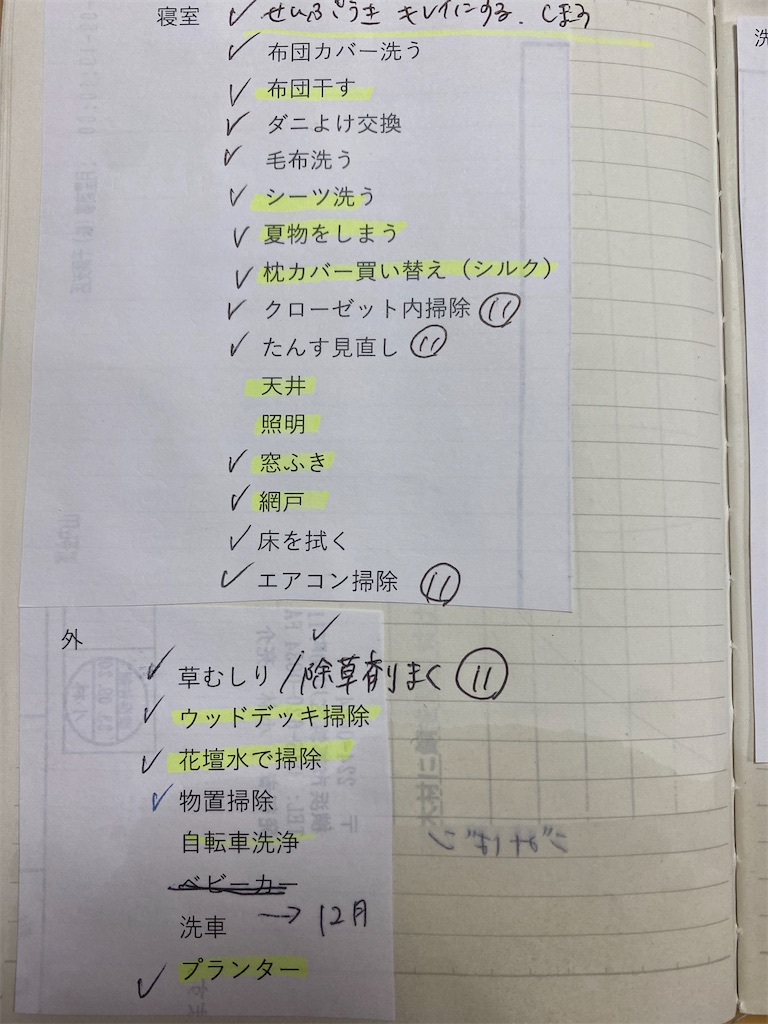 寝室 ✓ せんぷうき キレイにする. しまう
✓ 布団カバー洗う
✓ 布団干す
✓ ダニよけ交換
✓ 毛布洗う
✓ シーツ洗う
✓ 夏物をしまう
✓ 枕カバー買い替え（シルク）
✓ クローゼット内掃除 ⑪
✓ たんす見直し ⑪
天井
照明
✓ 窓ふき
✓ 網戸
✓ 床を拭く
✓ エアコン掃除 ⑪
外 ✓
✓ 草むしり /除草剤まく ⑪
✓ ウッドデッキ掃除
✓ 花壇水で掃除
✓ 物置掃除
自転車洗浄
ベビーカー
洗車 → 12月
✓ プランター
洗